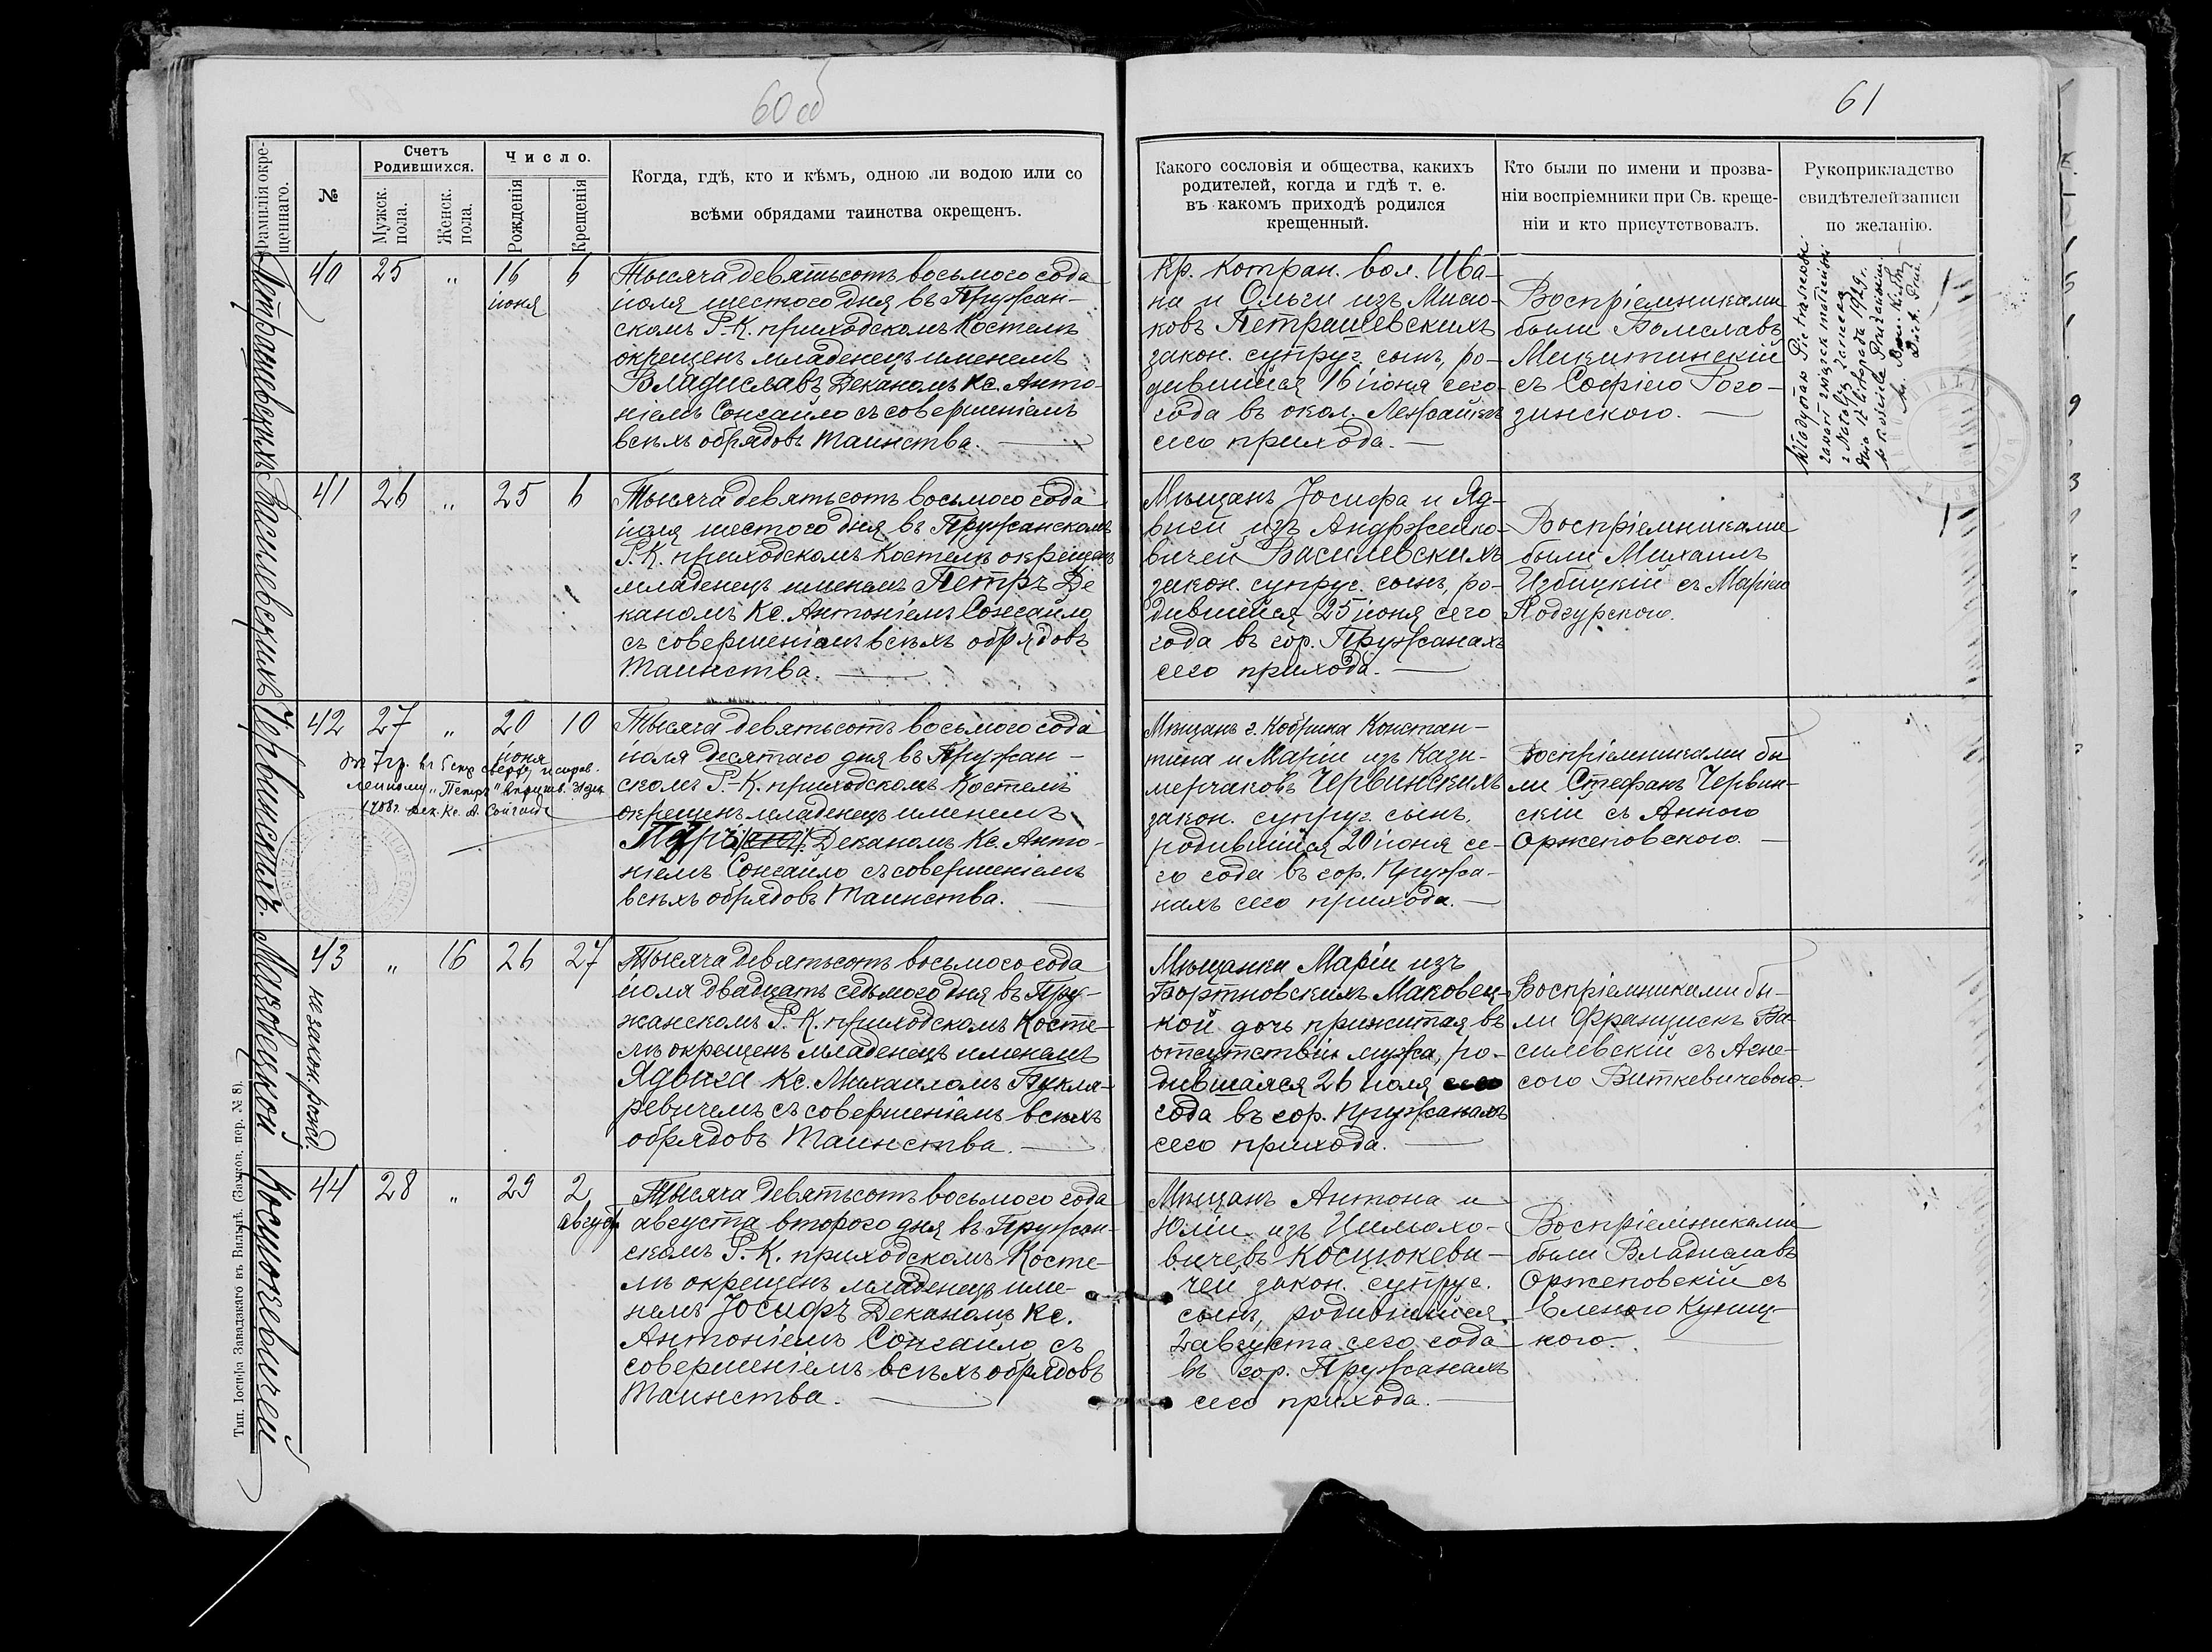 60 об
61
Фамилія окре-
щеннаго.
№
Счетъ
Родившихся.
Мужск.
пола.
Женск.
пола.
Число.
Рожденія
Крещенія
Когда, гдѣ, кто и кѣмъ, одною ли водою или со
всѣми обрядами таинства окрещенъ.
Какого сословія и общества, какихъ
родителей, когда и гдѣ т. е.
въ какомъ приходѣ родился
крещенный.
Кто были по имени и прозва-
ніи воспріемники при Св. креще-
ніи и кто присутствовалъ.
Рукоприкладство
свидѣтелей записи
по желанію.
Петрашевскихъ
40
25
"
16
іюня
6
Тысяча девятьсотъ восьмого года
іюля шестого дня въ Пружан-
скомъ Р.-К. приходскомъ Костелѣ
окрещенъ младенецъ именемъ
Владиславъ Деканомъ Кс. Анто-
ніемъ Сонгайло съ совершеніемъ
всѣхъ обрядовъ таинства.
Кр. Котран. вол. Ива-
на и Ольги изъ
Петрашевскихъ
закон. супруг. сынъ, ро-
дившійся 16 іюня сего
года въ окол.
сего прихода.
Воспріемниками
были Болеславъ
Микитинскій
съ Софіею Рого-
зинского.
zawarł związek małżeński
z Natalją
dnia 12 listopada 1929 r.
w kościele
Василевскихъ
41
26
"
25
6
Тысяча девятьсотъ восьмого года
іюля шестого дня въ Пружанскомъ
Р.К. приходскомъ Костелѣ окрещенъ
младенецъ именемъ Петръ Де
каномъ Кс. Антоніемъ Сонгайло
съ совершеніемъ всѣхъ обрядовъ
таинства.
Мѣщанъ Іосифа и Яд-
виги изъ Андржейко-
вичей Василевскихъ
закон. супруг. сынъ, ро-
дившійся 25 іюня сего
года въ гор. Пружанахъ
сего прихода.
Воспріемниками
были Михаилъ
Избицкій съ Маріею
Подгурского.
Червинскихъ.
42
27
"
20
іюня
10
Въ 7 гр. въ 5 стр сверху исправ-
ленному „Петръ" вѣрить.
1908 г. Дек. Кс. А. Сонгайло
Тысяча девятьсотъ восьмого года
іюля десятаго дня въ Пружан-
скомъ Р.-К. приходскомъ Костелѣ
окрещенъ младенецъ именемъ
Петръ Деканомъ Кс. Анто-
ніемъ Сонгайло съ совершеніемъ
всѣхъ обрядовъ таинства.
Мѣщанъ г. Кобрина Констан-
тина и Маріи изъ Кази-
мерчаковъ Червинскихъ
закон. супруг. сынъ,
родившійся 20 іюня се-
го года въ гор. Пружа-
нахъ сего прихода.
Воспріемниками бы
ли Стефанъ Червин-
скій съ Анною
Оржеповского.
Маковецкой
43
"
16
26
27
не закон. рожд.
Тысяча девятьсотъ восьмого года
іюля двадцать седьмого дня въ Пру-
жанскомъ Р.К. приходскомъ Косте-
лѣ окрещенъ младенецъ именемъ
Ядвига Кс. Михаиломъ Букля-
ревичемъ съ совершеніемъ всѣхъ
обрядовъ таинства.
Мѣщанки Маріи изъ
Бортновскихъ Маковец-
кой дочь прижитая въ
отсутствіи мужа, ро-
дившаяся 26 іюля сего
года въ гор. Пружанахъ
сего прихода.
Воспріемниками бы-
ли Францискъ Ва-
силевскій съ Агне-
сого Виткевичевого.
Косцюкевичей
44
28
"
29
2
август
Тысяча девятьсотъ восьмого года
августа второго дня въ Пружан-
скомъ Р.-К. приходскомъ Косте-
лѣ окрещенъ младенецъ име-
немъ Іосифъ Деканомъ Кс.
Антоніемъ Сонгайло съ
совершеніемъ всѣхъ обрядовъ
таинства.
Мѣщанъ Антона и
Юліи изъ Цимохо-
вичевъ Косцюкеви-
чей закон. супруг.
сынъ, родившійся
2 августа сего года
въ гор. Пружанахъ
сего прихода.
Воспріемниками
были Владиславъ
Оржеповскій съ
Еленою Куниц-
кого.
Тип. Іосифа Завадзкаго въ Вильнѣ. (Замков. пер. № 8).